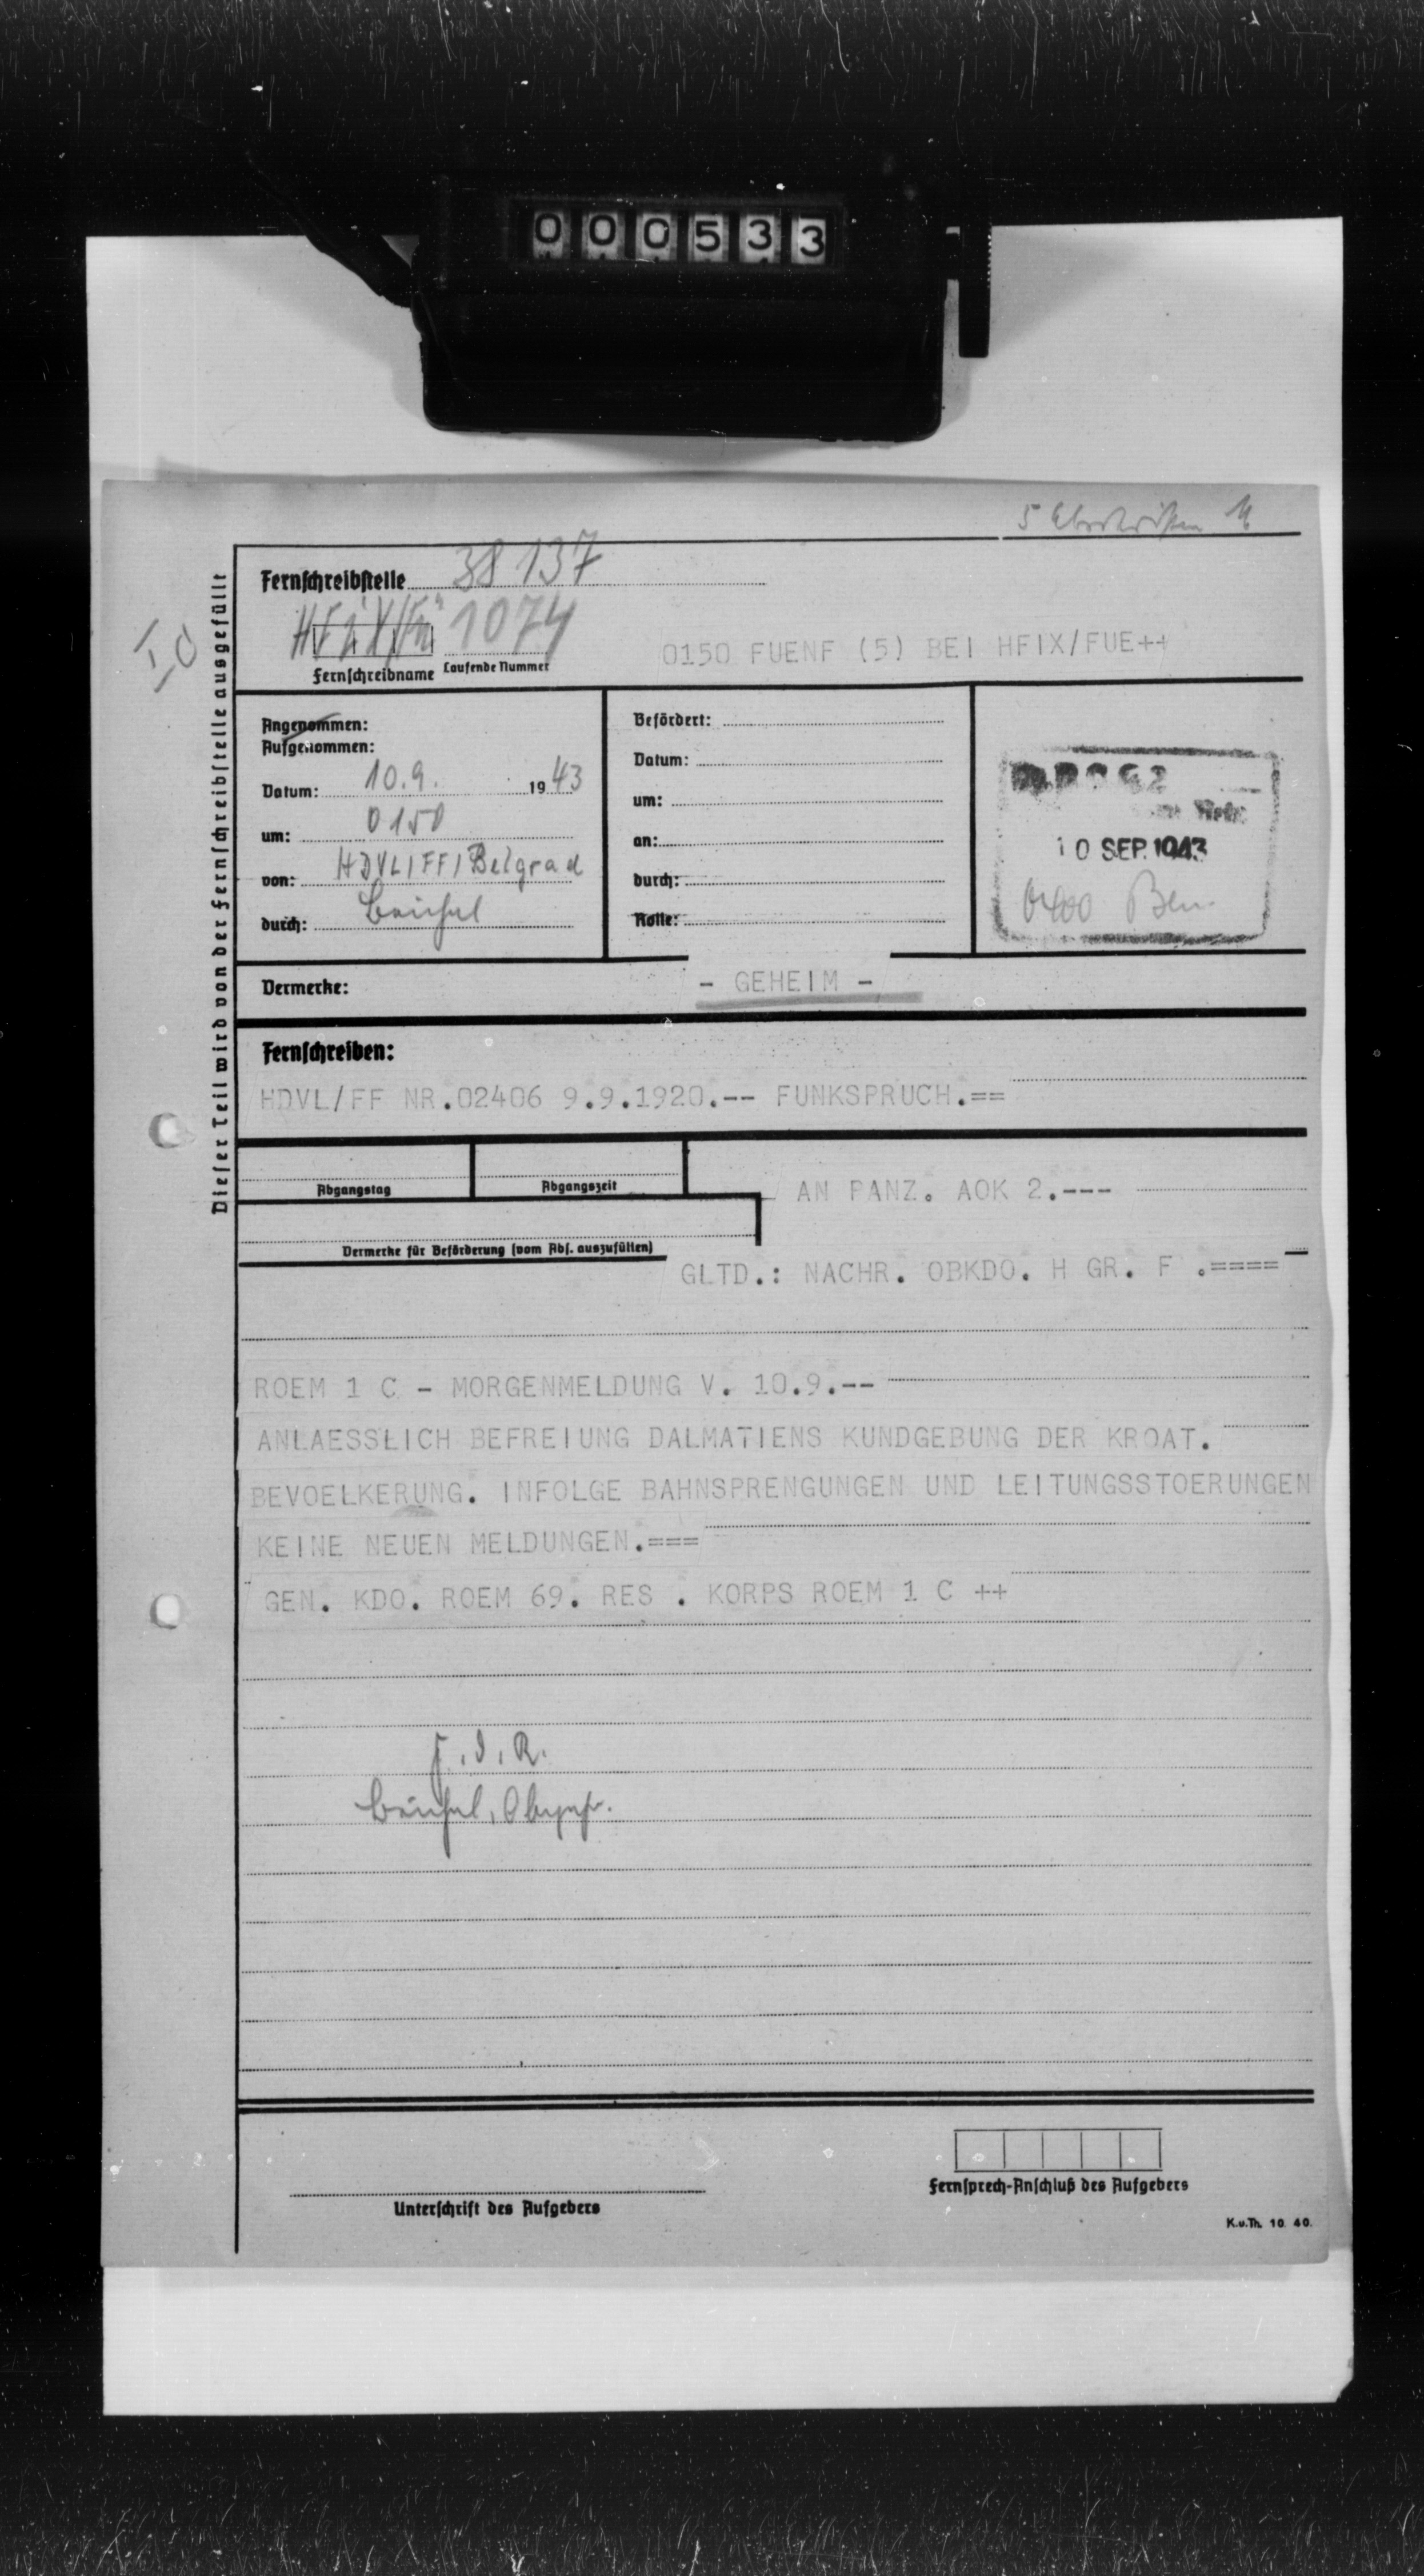 000533
5 Abschriften
Fernschreibstelle 38 137
HFIX/Fü 1074
Fernschreibname Laufende Nummer
0150 FUENF (5) BEI HFIX/FUE++
I c
Dieser Teil wird von der Fernschreibstelle ausgefüllt
Angenommen:
Aufgenommen:
Datum: 10.9. 1943
um: 0150
von: HDVL/FF/Belgrad
durch:
Befördert:
Datum:
um:
an:
durch:
Rolle:
10 SEP. 1943
0400
Vermerke:
- GEHEIM -
Fernschreiben:
HDVL/FF NR.02406 9.9.1920.-- FUNKSPRUCH.==
Abgangstag
Abgangszeit
AN PANZ. AOK 2.---
Vermerke für Beförderung (vom Abs. auszufüllen)
GLTD.: NACHR. OBKDO. H GR. F .====
ROEM 1 C - MORGENMELDUNG V. 10.9.--
ANLAESSLICH BEFREIUNG DALMATIENS KUNDGEBUNG DER KROAT.
BEVOELKERUNG. INFOLGE BAHNSPRENGUNGEN UND LEITUNGSSTOERUNGEN
KEINE NEUEN MELDUNGEN.===
GEN. KDO. ROEM 69. RES . KORPS ROEM 1 C ++
F.d.R.
Unterschrift des Aufgebers
Fernsprech-Anschluß des Aufgebers
K.u.Th. 10. 40.